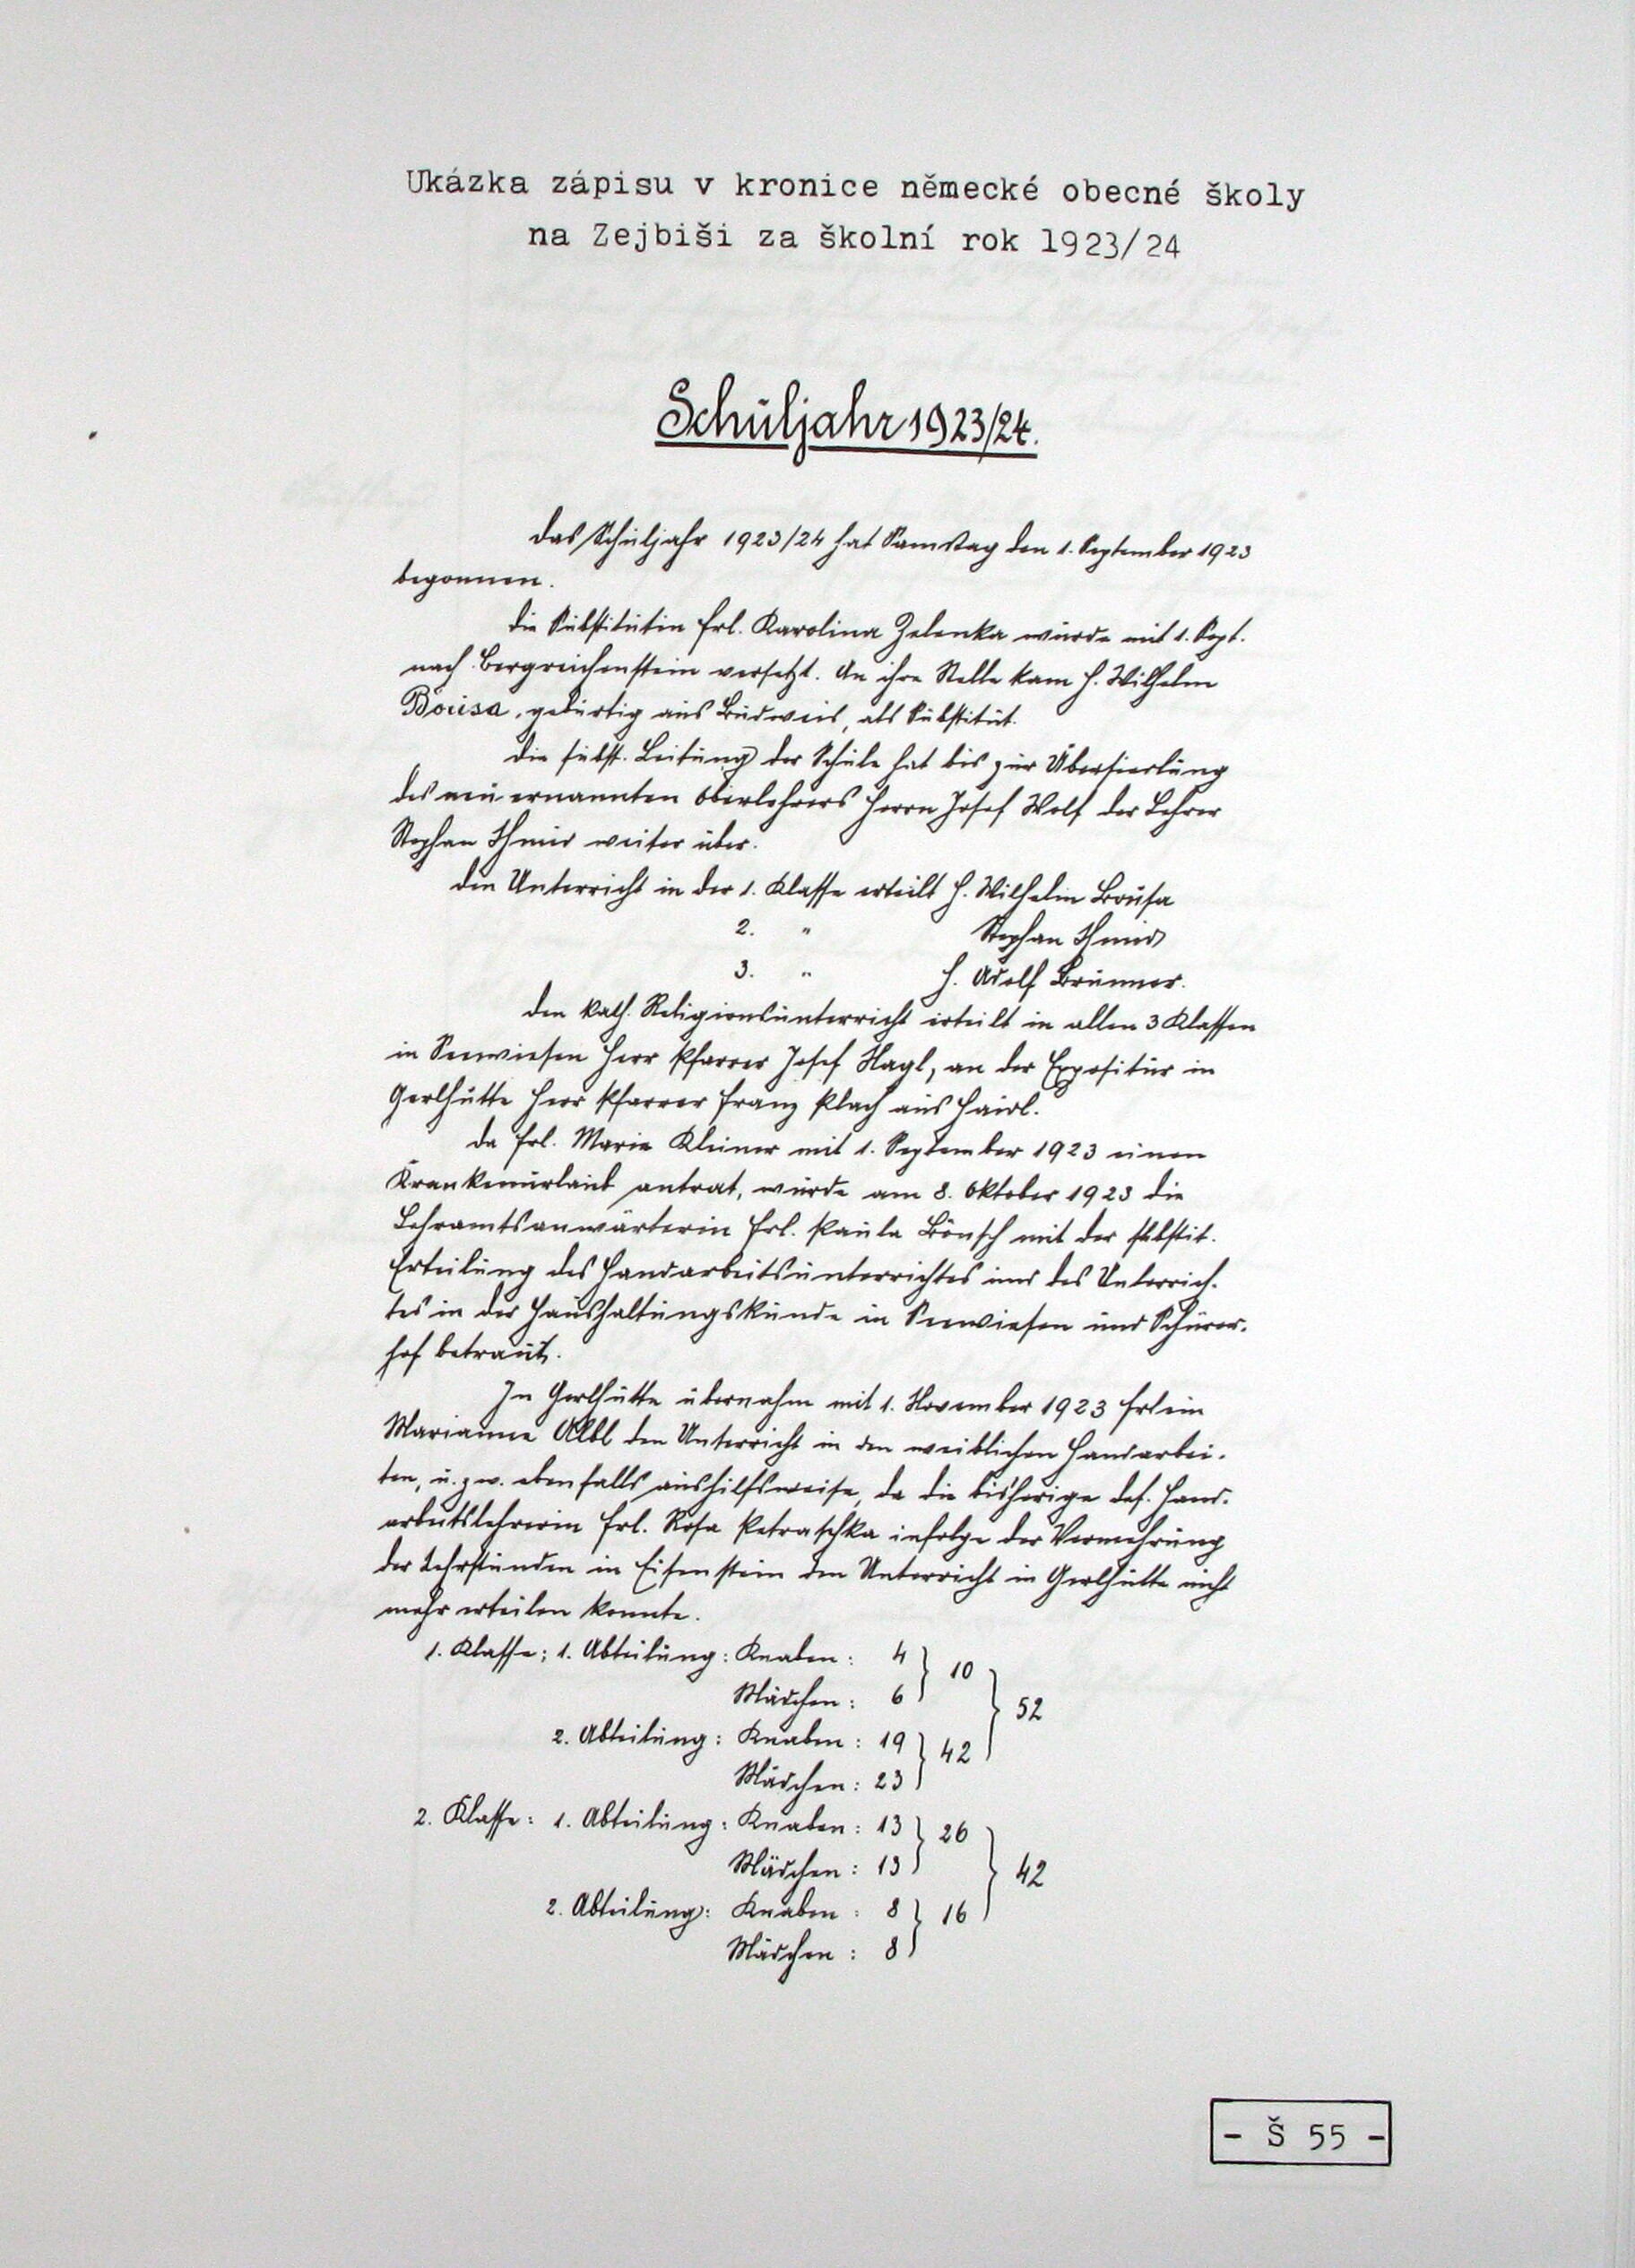 Ukázka zápisu v kronice německé obecné školy
na Zejbiši za školní rok 1923/24
Schuljahr 1923/24.
Das Schuljahr 1923/24 hat Samstag den 1. September 1923
begonnen.
Die Substitutin Frl. Karolina Zelenka wurde mit 1. Sept.
nach Bergreichenstein versetzt. An ihre Stelle kam H. Wilhelm
Bousa, gebürtig aus Budweis, als Substitut.
Die subst. Leitung der Schule hat bis zur Übersiedlung
des neu ernannten Oberlehrers Herrn Josef Wolf der Lehrer
Stephan Schmid weiter über.
Den Unterricht in der 1. Klasse erteilt H. Wilhelm Bousa
2. " Stephan Schmid
3. " H. Adolf Brunner.
Den kath. Religionsunterricht erteilt in allen 3 Klassen
in Seewiesen Herr Pfarrer Josef Nagl, an der Expositur in
Gerlhütte Herr Pfarrer Franz Plach aus Haidl.
Da Frl. Marie Kleiner mit 1. September 1923 einen
Krankenurlaub antrat, wurde am 8. Oktober 1923 die
Lehramtsanwärterin Frl. Paula Bönsch mit der substit.
Erteilung des Handarbeitsunterrichtes und des Unterrich-
tes in der Haushaltungskunde in Seewiesen und Schürer-
hof betraut.
In Gerlhütte übernahm mit 1. November 1923 Frlein
Marianne Albl den Unterricht in den weiblichen Handarbei-
ten, u. zw. ebenfalls aushilfsweise, da die bisherige def. Hand-
arbeitslehrerin Frl. Rosa Petraschka infolge der Vermehrung
der Lehrstunden in Eisenstein den Unterricht in Gerlhütte nicht
mehr erteilen konnte.
1. Klasse; 1. Abteilung: Knaben: 4 } 10
Mädchen: 6 } 52
2. Abteilung: Knaben: 19 } 42
Mädchen: 23
2. Klasse: 1. Abteilung: Knaben: 13 } 26
Mädchen: 13 } 42
2. Abteilung: Knaben: 8 } 16
Mädchen: 8
- Š 55 -